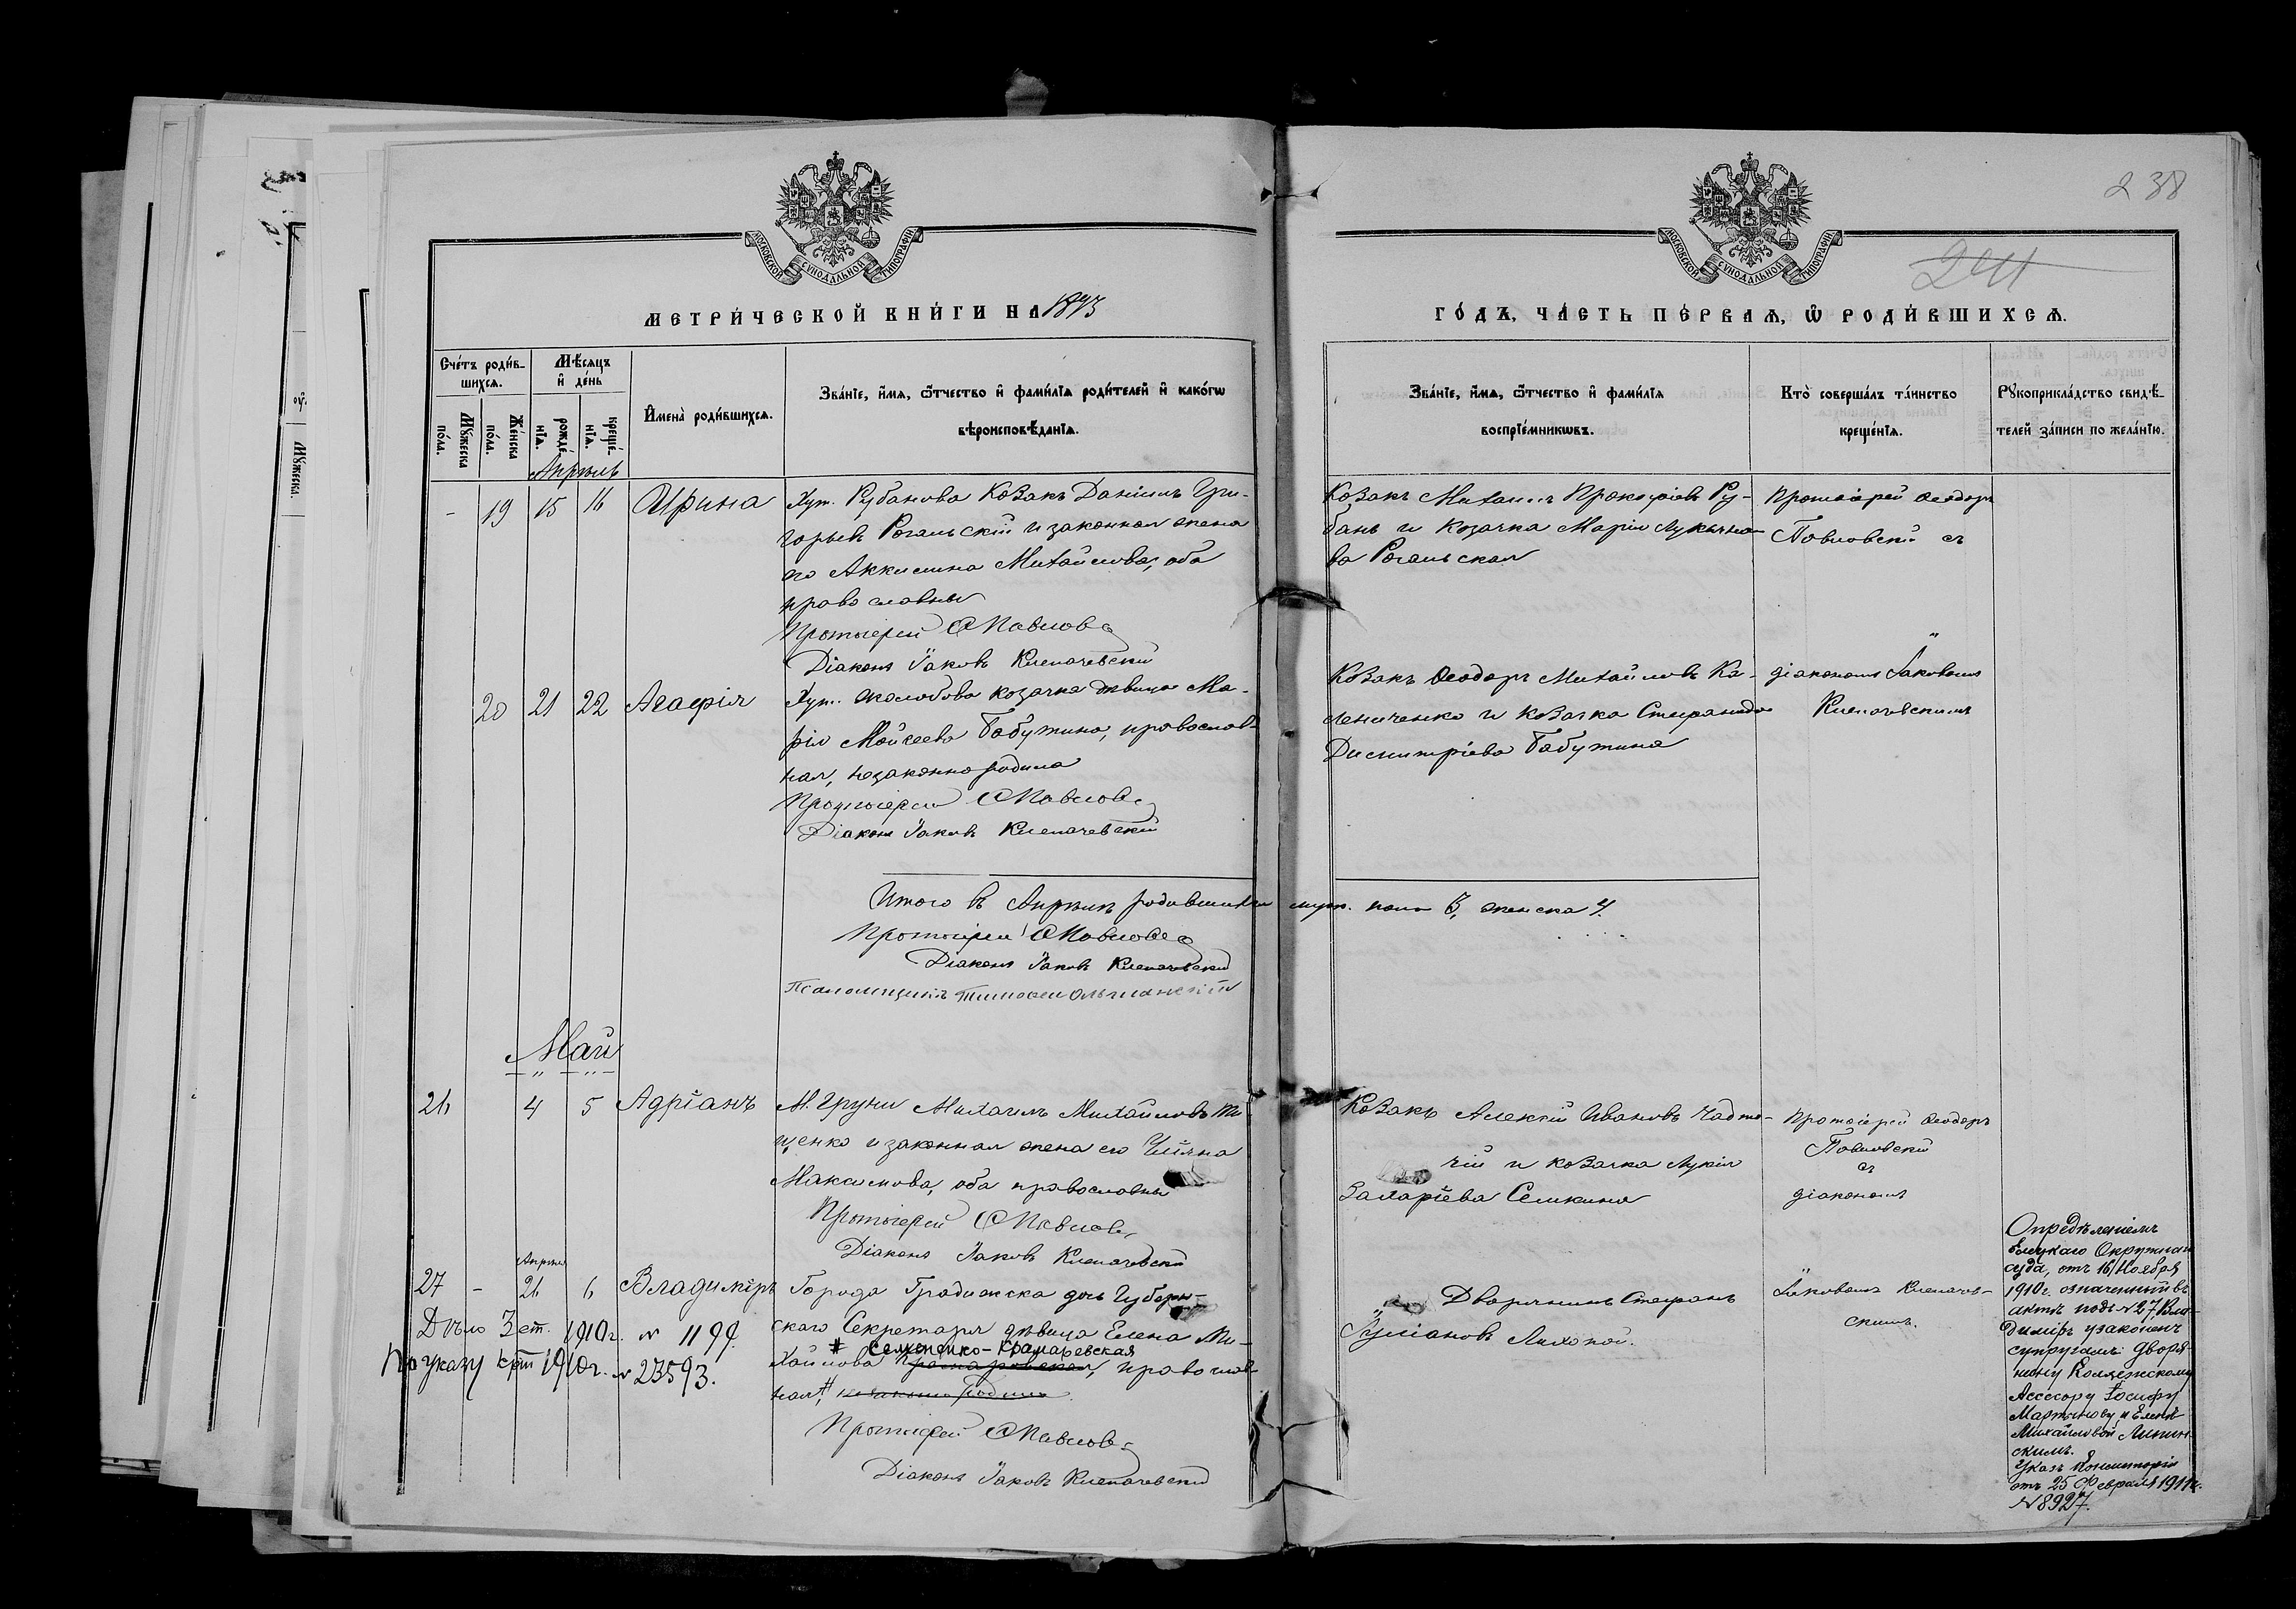 238
241
МОСКОВСКОЙ СѴНОДАЛЬНОЙ ТИПОГРАФІИ
МОСКОВСКОЙ СѴНОДАЛЬНОЙ ТИПОГРАФІИ
МЕТРИ́ЧЕСКОЙ КНИ́ГИ НА 1893
ГО́ДЪ, ЧА́СТЬ ПЕ́РВАЯ, Ѡ РОДИ́ВШИХСЯ.
Сче́тъ роди́в-
шихся.
Мꙋжеска
по́ла.
Же́нска
по́ла.
Мѣ́сяцъ
и҆ де́нь
рожде́-
нїя.
креще́-
нїя.
И҆мена̀ роди́вшихся.
Зва́нїе, и҆́мя, ѻ҆́тчество и҆ фами́лїя роди́телей и҆ како́гѡ
вѣроисповѣ́данїя.
Зва́нїе, и҆́мя, ѻ҆́тчество и҆ фами́лїя
воспрїе́мникѡвъ.
Кто̀ соверша́лъ та́инство
креще́нїя.
Рꙋкоприкла́дство свидѣ́-
телей за́писи по жела́нїю.
Апрѣль
- 19 15 16 Ирина
Хут. Рубанова Козакъ Даніилъ Гри-
горьевъ Рогальскій и законная жена
его Акилина Михайлова, оба
православны
Протоіерей Ѳ Павлов
Діаконъ Іаковъ Клепачевскій
Козакъ Михаилъ Прокофіевъ Ру-
бань и козачка Марія Лукьяно-
ва Рогальская
Протоіерей Ѳеодоръ
Павловскій съ
20 21 22 Агафія
козачка дѣвица Ма-
рія Моисеева Бабутина, православ-
ная, незаконно родила
Протоіерей Ѳ Павлов
Діаконъ Іаковъ Клепачевскій
Козакъ Ѳеодоръ Михайловъ Ка-
лениченко и козачка Стефанида
Димитріева Бабутина
діакономъ Іаковомъ
Клепачевскимъ
Итого въ Апрѣлѣ родившихся муж. пола 3, женска 4.
Протоіерей Ѳ Павлов
Діаконъ Іаковъ Клепачевскій
Псаломщикъ Тимоѳей Ольшанскій
Май
26 4 5 Адріанъ
М. Груни Михаилъ Михайловъ Ти-
щенко и законная жена его
Максимова, оба православны
Протоіерей Ѳ Павлов
Діаконъ Іаковъ Клепачевскій
Козакъ Алексій Ивановъ
чій и козачка Лукія
Захаріева Семкина
Протоіерей Ѳеодоръ
Павловскій
съ
діакономъ
Апрѣля
27 - 26 6 Владиміръ
Города Градижска дочь Губерн-
скаго Секретаря дѣвица Елена Ми-
# Семененко-Крамаревская
хайлова Крамаревская, православ-
ная,# незаконно родила
Протоіерей Ѳ Павлов
Діаконъ Іаковъ Клепачевскій
Дѣло 3 ст. 1910 г. № 1199.
По указу 1910 г. № 23593.
Дворянинъ Стефанъ
Лихопой.
Іаковомъ Клепачев-
скимъ.
Опредѣленіемъ
Елецкаго Окружнаго
суда, отъ 16 Ноября
1910 г. означенный въ
актѣ подъ № 27, Вла-
диміръ узаконенъ
супругами: дворя-
нину Коллежскому
Асессору Іосифу
Мартинову и Еленѣ
Михайловой Липин-
скимъ.
Указъ Консисторіи
отъ 25 Февраля 1911 г.
№ 8927.